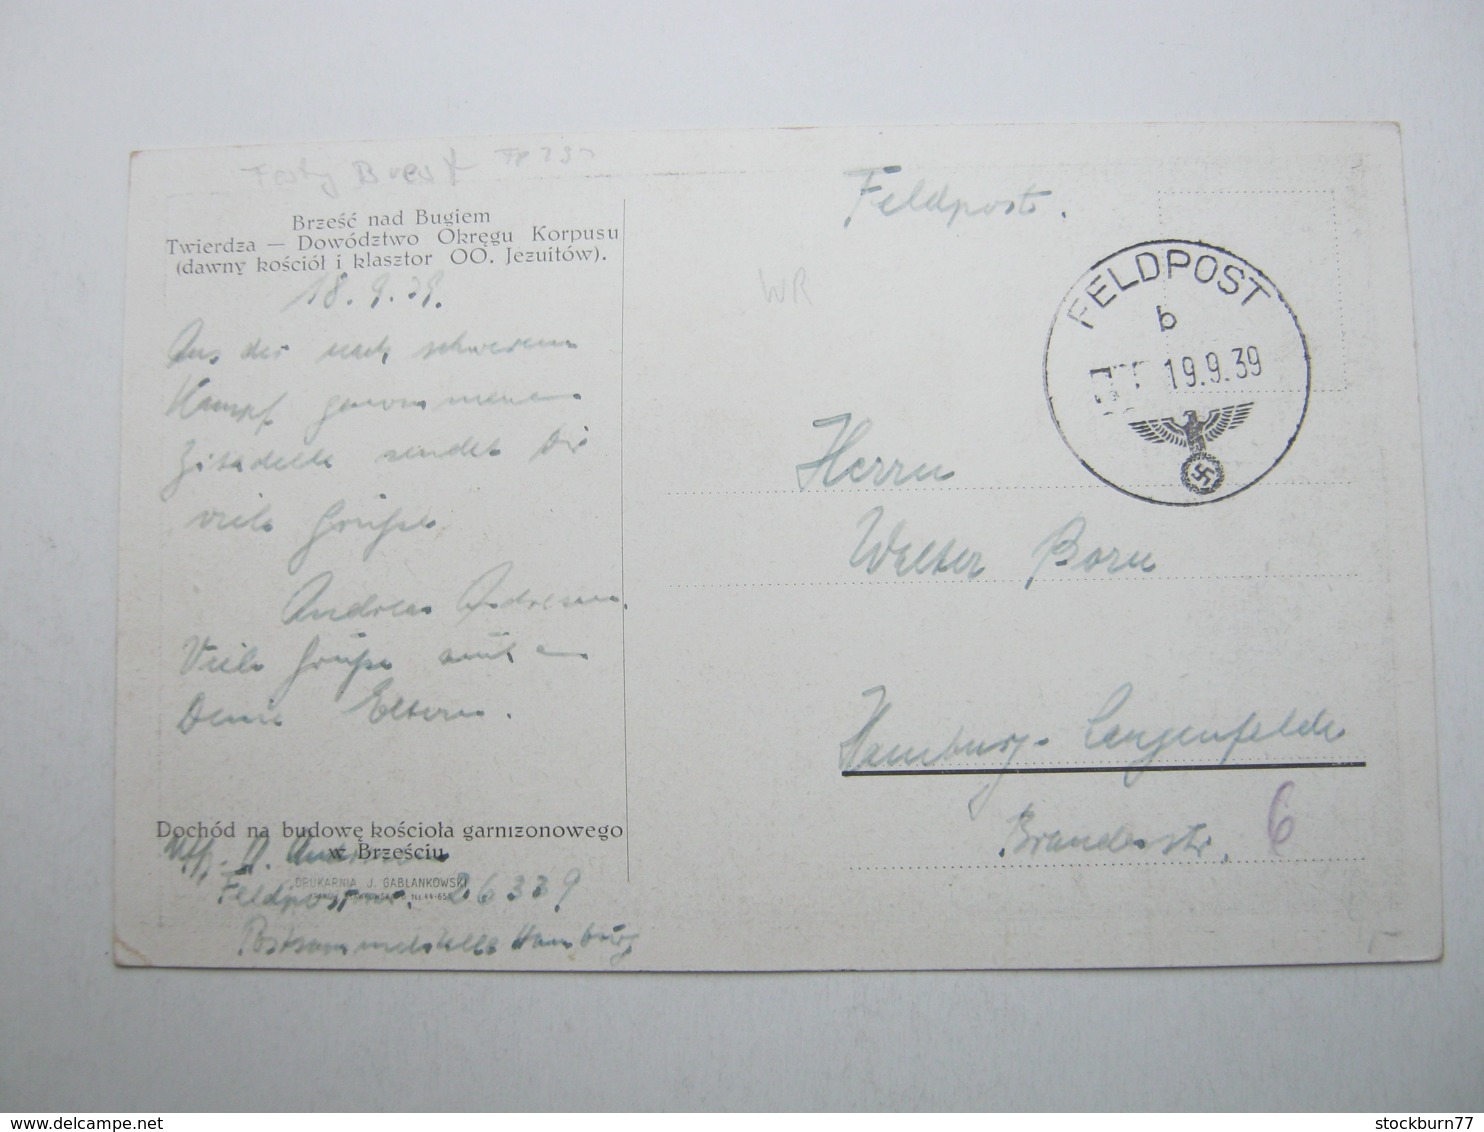 Brest
Brześć nad Bugiem
Twierdza — Dowództwo Okręgu Korpusu
(dawny kościół i klasztor OO. Jezuitów).
18.9.39.
Aus der nach schwerem
Kampf genommenen
Zitadelle sendet Dir
viele Grüße
Andreas
Viele Grüße auch an
Deine Eltern.
Dochód na budowę kościoła garnizonowego
w Brześciu
Uffz. A.
DRUKARNIA J. GABLANKOWSKI
Feldpostnr. 26339
Postsammelstelle Hamburg
Feldpost.
WR
FELDPOST
b
19.9.39
Herrn
Walter Born
Hamburg-Langenfelde
Brandesstr. 6
stockburn77